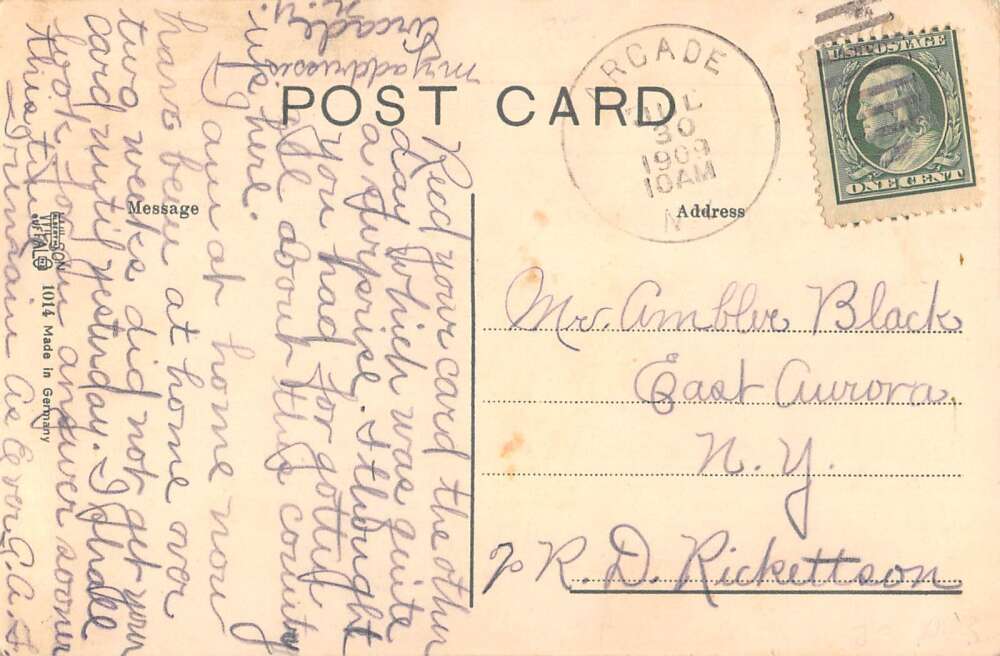 POST CARD
ARCADE
JUL
30
1909
10AM
N
U.S. POSTAGE
ONE CENT
Message
Address
Mr. Ambler Black
East Aurora
N. Y.
R. D. Rickettson
Recd your card the other
day which was quite
a surprise. I thought
you had for gotten
all about this country
up here.
I am at home now
have been at home over
two weeks did not get your
card until yesterday. I shall
look for an answer sooner
this time
Truman As Ever. A. S
my address is
Arcade
N.Y.
BUFFALO
1014 Made in Germany